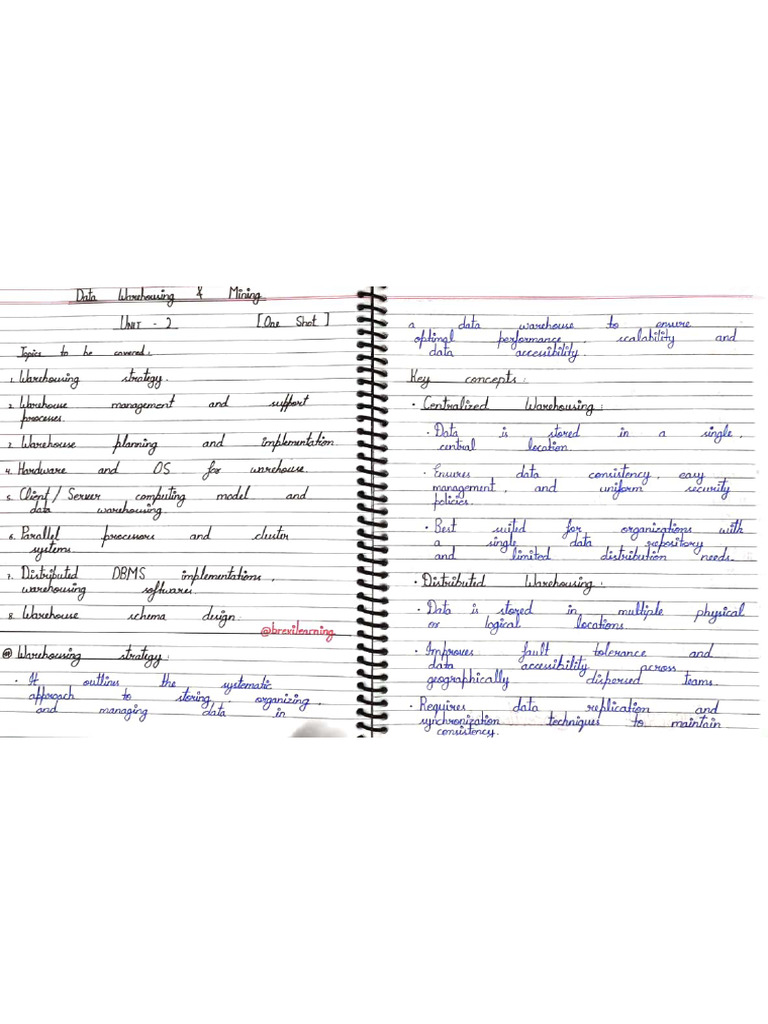 Data Warehousing & Mining
UNIT - 2 [One Shot]
Topics to be covered:
1. Warehousing strategy.
2. Warehouse management and support
processes.
3. Warehouse planning and implementation.
4. Hardware and OS for warehouse.
5. Client/Server computing model and
data warehousing.
6. Parallel processors and cluster
systems.
7. Distributed DBMS implementations,
warehousing softwares.
8. Warehouse schema design.
@brevilearning
@ Warehousing strategy:
• It outlines the systematic
approach to storing, organizing,
and managing data in
a data warehouse to ensure
optimal performance, scalability and
data accessibility.
Key concepts:
• Centralized Warehousing:
• Data is stored in a single,
central location.
• Ensures data consistency, easy
management, and uniform security
policies.
• Best suited for organizations with
a single data repository
and limited distribution needs.
• Distributed Warehousing:
• Data is stored in multiple physical
or logical locations.
• Improves fault tolerance and
data accessibility across
geographically dispersed teams.
• Requires data replication and
synchronization techniques to maintain
consistency.